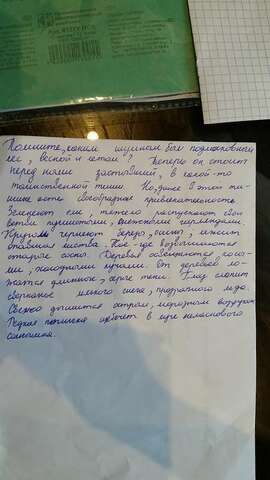 Помните, каким шумным был подмосковный
лес, весной и летом? Теперь он стоит
перед нами застывший, в какой-то
таинственной тиши. Но, даже в этой ти-
шине есть своеобразная привлекательность.
Зеленеют ели, тяжело распускают свои
ветви пушистыми, снежными гирляндами.
Кругом чернеют березы, осины, лежит
опавшая листва. Кое-где возвышаются
старые сосны. Деревья освещаются, косы-
ми, холодными лучами. От деревьев ло-
жатся длинные, серые тени. Глаз слепит
сверканье мелкого снега, прозрачного льда.
Свежо дышится острым, морозным воздухом.
Редкая птичка в луче неласкового
солнышка.